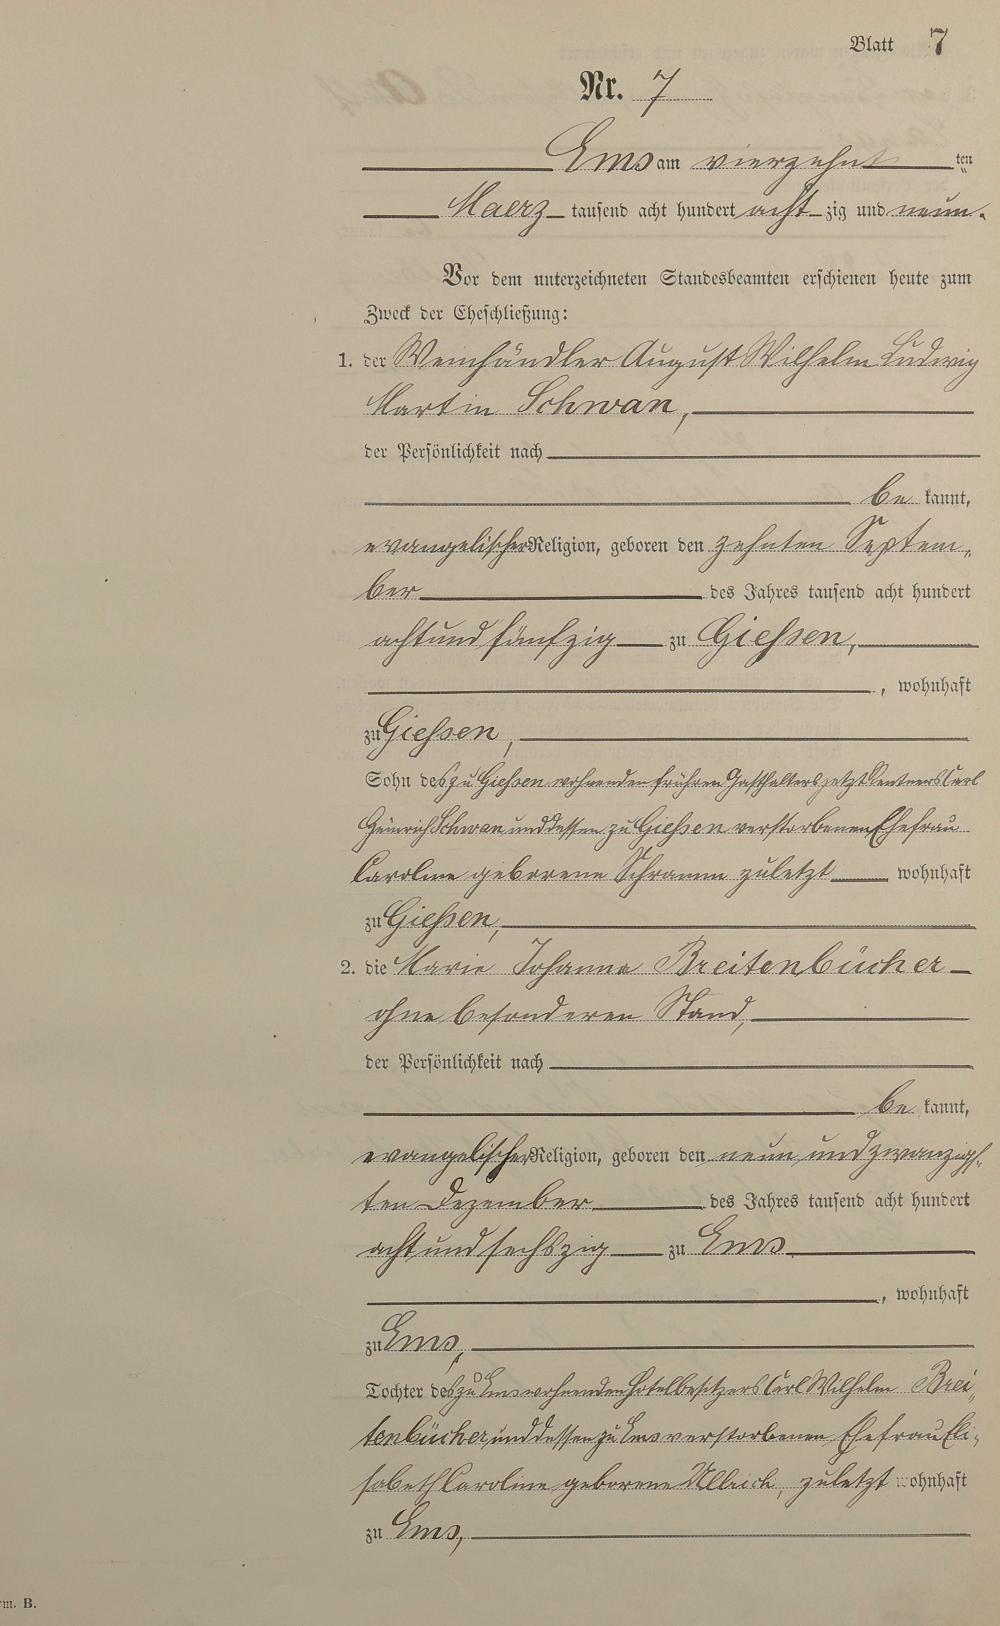 Blatt 7
Nr. 7
Ems am vierzehnten
Maerz tausend acht hundert achtzig und neun.
Vor dem unterzeichneten Standesbeamten erschienen heute zum
Zweck der Eheschließung:
1. der Weinhändler August Wilhelm Ludwig
Martin Schwan,
der Persönlichkeit nach
bekannt,
evangelischer Religion, geboren den zehnten Septem„
ber des Jahres tausend acht hundert
achtund fünfzig zu Gießen,
, wohnhaft
zu Gießen,
Sohn des zu Gießen wohnenden früheren Gasthalters jetzt Rentners Carl
Heinrich Schwan und dessen zu Gießen verstorbenen Ehefrau
Caroline geborene Schramm zuletzt wohnhaft
zu Gießen,
2. die Marie Johanna Breitenbücher
ohne besonderen Stand,
der Persönlichkeit nach
bekannt,
evangelischer Religion, geboren den neun und zwanzigs„
ten Dezember des Jahres tausend acht hundert
acht und sechszig zu Ems
, wohnhaft
zu Ems,
Tochter des zu Ems wohnenden Hotelbesitzers Carl Wilhelm Brei„
tenbücher und dessen zu Ems verstorbenen Ehefrau Eli„
sabeth Caroline geborene Ullrich, zuletzt wohnhaft
zu Ems,
rm. B.